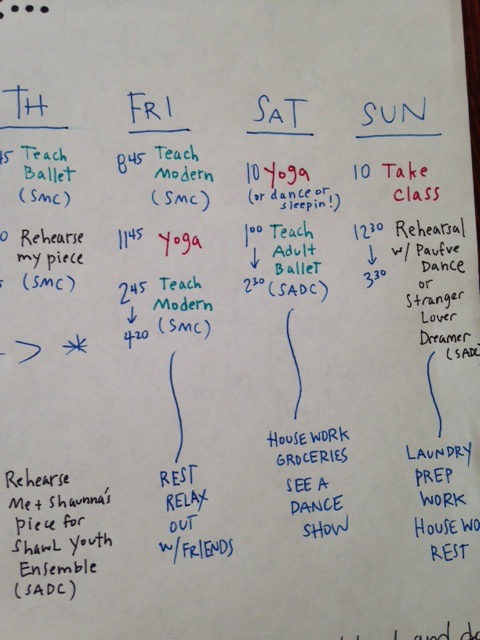 TH
45 Teach
Ballet
(SMC)
0 Rehearse
my piece
(SMC)
Rehearse
Me + Shaunna's
piece for
Shawl Youth
Ensemble
(SADC)
FRI
8 45 Teach
Modern
(SMC)
11 45 Yoga
2 45 Teach
Modern
4 20 (SMC)
REST
RELAX
OUT
W/FRIENDS
SAT
10 Yoga
(or dance or
sleepin!)
1 00 Teach
Adult
Ballet
2 30 (SADC)
HOUSE WORK
GROCERIES
SEE A
DANCE
SHOW
SUN
10 Take
class
12 30 Rehearsal
w/ Paufve
3 30 Dance
or
Stranger
Lover
Dreamer
(SADC
LAUNDRY
PREP
WORK
HOUSE WO
REST